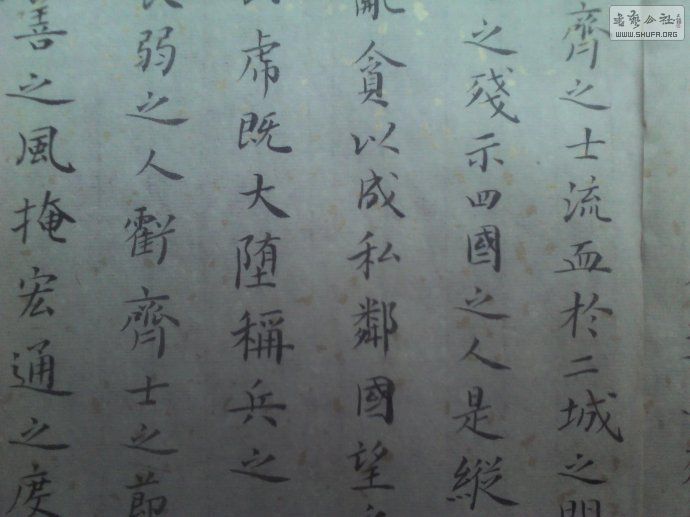 齊之士流血於二城之間
之殘示四國之人是縱
亂貪以成私鄰國望
虎既大墮稱兵之
弱之人虧齊士之節
善之風掩宏通之度
書法公社
WWW.SHUFA.ORG